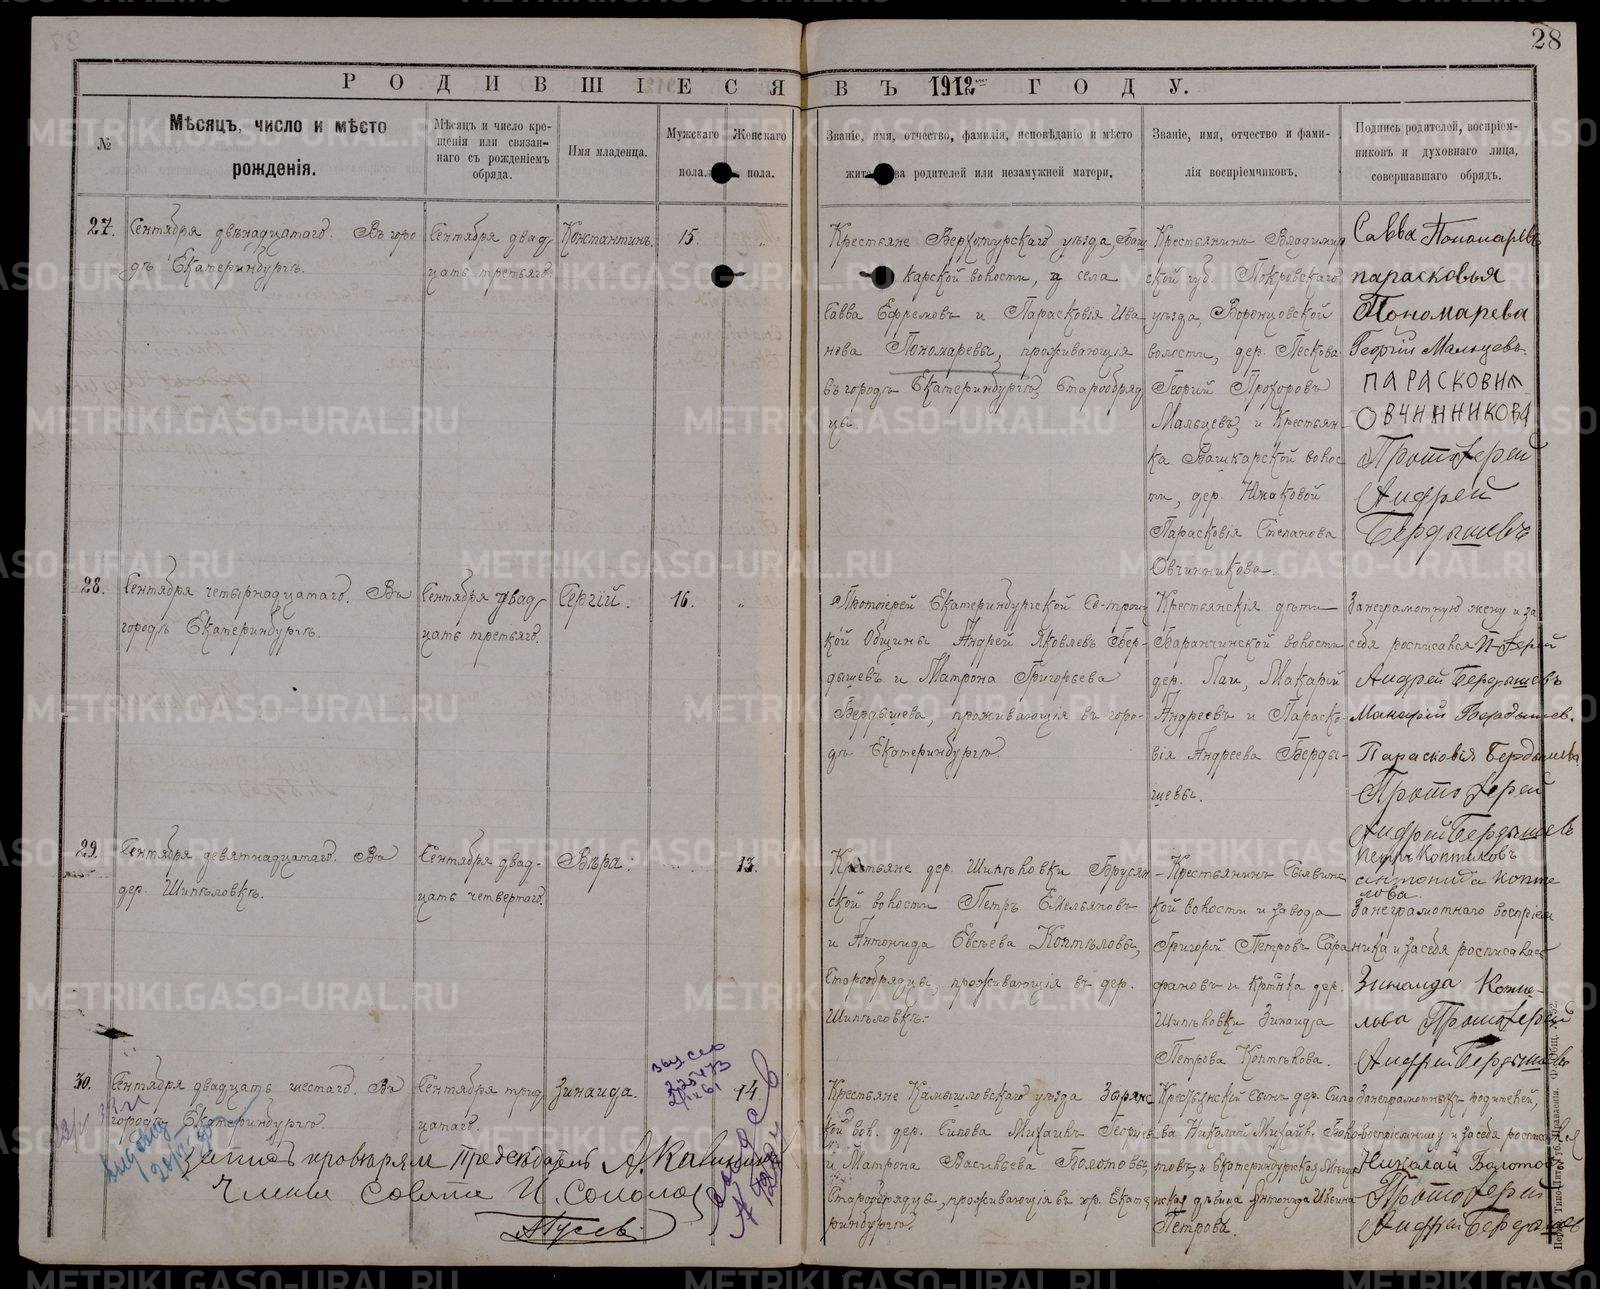 28
РОДИВШІЕСЯ ВЪ 1912 ГОДУ.
№
Мѣсяцъ, число и мѣсто
рожденія.
Мѣсяцъ и число кре-
щенія или связан-
наго съ рожденіемъ
обряда.
Имя младенца.
Мужскаго
пола.
Женскаго
пола.
Званіе, имя, отчество, фамилія, исповѣданіе и мѣсто
родителей или незамужней матери.
Званіе, имя, отчество и фами-
лія воспріемчиковъ.
Подпись родителей, воспріем-
никовъ и духовнаго лица,
совершавшаго обрядъ.
27.
Сентября двѣнадцатаго. Въ горо
дѣ Екатеринбургѣ.
Сентября двад
цать третьяго.
Константинъ.
15.
Крестьяне Верхотурскаго уѣзда, Баш
карской волости, и села
Савва Ефремовъ и Парасковія Ива
нова Пономаревы, проживающія
въ городѣ Екатеринбургѣ, Старообряд
цы.
Крестьянинъ Владимир
ской губ. Покровскаго
уѣзда, Воронцовской
волости, дер. Пескова
Георгій Прохоровъ
Мальцевъ, и Крестьян-
ка Башкарской волос
ти, дер. Южаковой
Парасковія Степанова
Овчинникова.
Савва Пономаревъ
парасковья
Пономарева
Георгій Мальцевъ
ПАРАСКОВИЯ
ОВЧИННИКОВА
Протоіерей
Андрей
Бердышевъ
28.
Сентября четырнадцатаго. Въ
городѣ Екатеринбургѣ.
Сентября двад
цать третьяго.
Сергій.
16.
Протоіерей Екатеринбургской Св-троиц
кой Общины Андрей Яковлевъ Бер-
дышевъ и Матрона Григорьева
Бердышева, проживающія въ горо-
дѣ Екатеринбургѣ
Крестьянскія дѣти
Баранчинской волости
дер. Лаи, Макарій
Андреевъ и Параско-
вія Андреева Берды-
шевы.
Занеграмотную жену и за
себя росписался П-іерей
Андрей Бердышевъ
Макарій Бердышев.
Парасковія Бердышева
Протоіерей
Андрей Бердышевъ
29.
Сентября девятнадцатаго. Въ
дер. Шипѣловкѣ.
Сентября двад-
цать четвертаго.
Вѣра.
13.
Крестьяне дер. Шипѣловки Брусян
ской волости Петръ Емельяновъ
и Антонида Евсѣева Коптѣловы,
Старообрядцы, проживающія въ дер.
Шипѣловкѣ.-
Крестьянинъ
кой волости и завода
Григорій Петровъ Сара
фановъ и Крѣнка дер.
Шипѣловки Зинаида
Петрова Коптѣлова.
Петръ Коптиловъ
антонида копте
лова.
Занеграмотнаго воспріем
ника и засебя росписалась
Зинаида Копте-
лова Протоіерей
Андрей Бердышевъ
30.
Сентября двадцать шестаго. Въ
городѣ Екатеринбургѣ.
Сентября трид
цатаго.
Зинаида.
14.
Крестьяне Камышловскаго уѣзда Зарянс
кой вол. дер. Сипова Михаилъ Георгіев
и Матрона Васильева Болотовы,
Старообрядцы, проживающія въ гор. Екате
ринбургѣ.
Крестьянскій сынъ дер. Сипо
ва Николай Михайл. Боло
товъ, и Екатеринбургская Мѣща
нская дѣвица Антонида Ивлвина
Петрова.
Занеграмотныхъ родителей,
воспріемницу и засебя росписался
Николай Болотовъ
Протоіерей
Андрей Бердышевъ
Запись провѣрялъ Предсѣдатель А. Калинин
Члены Совѣта И. Соколов
А Гусев